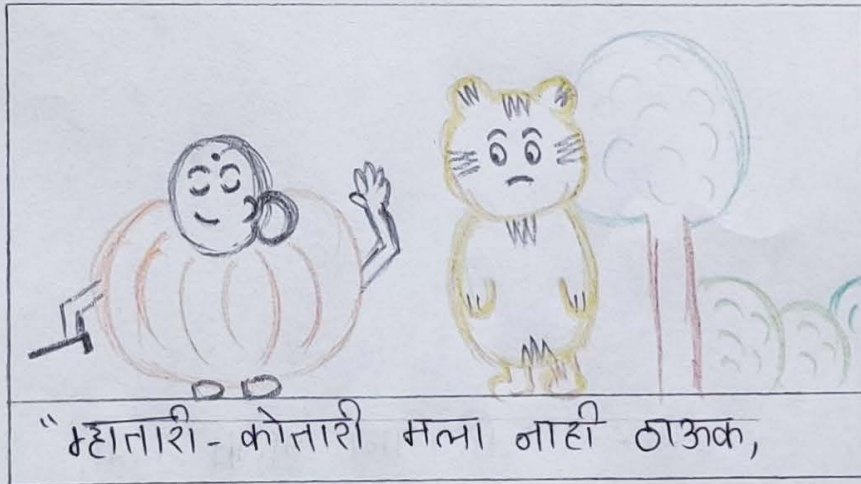 "म्हातारी - कोतारी मला नाही ठाऊक,